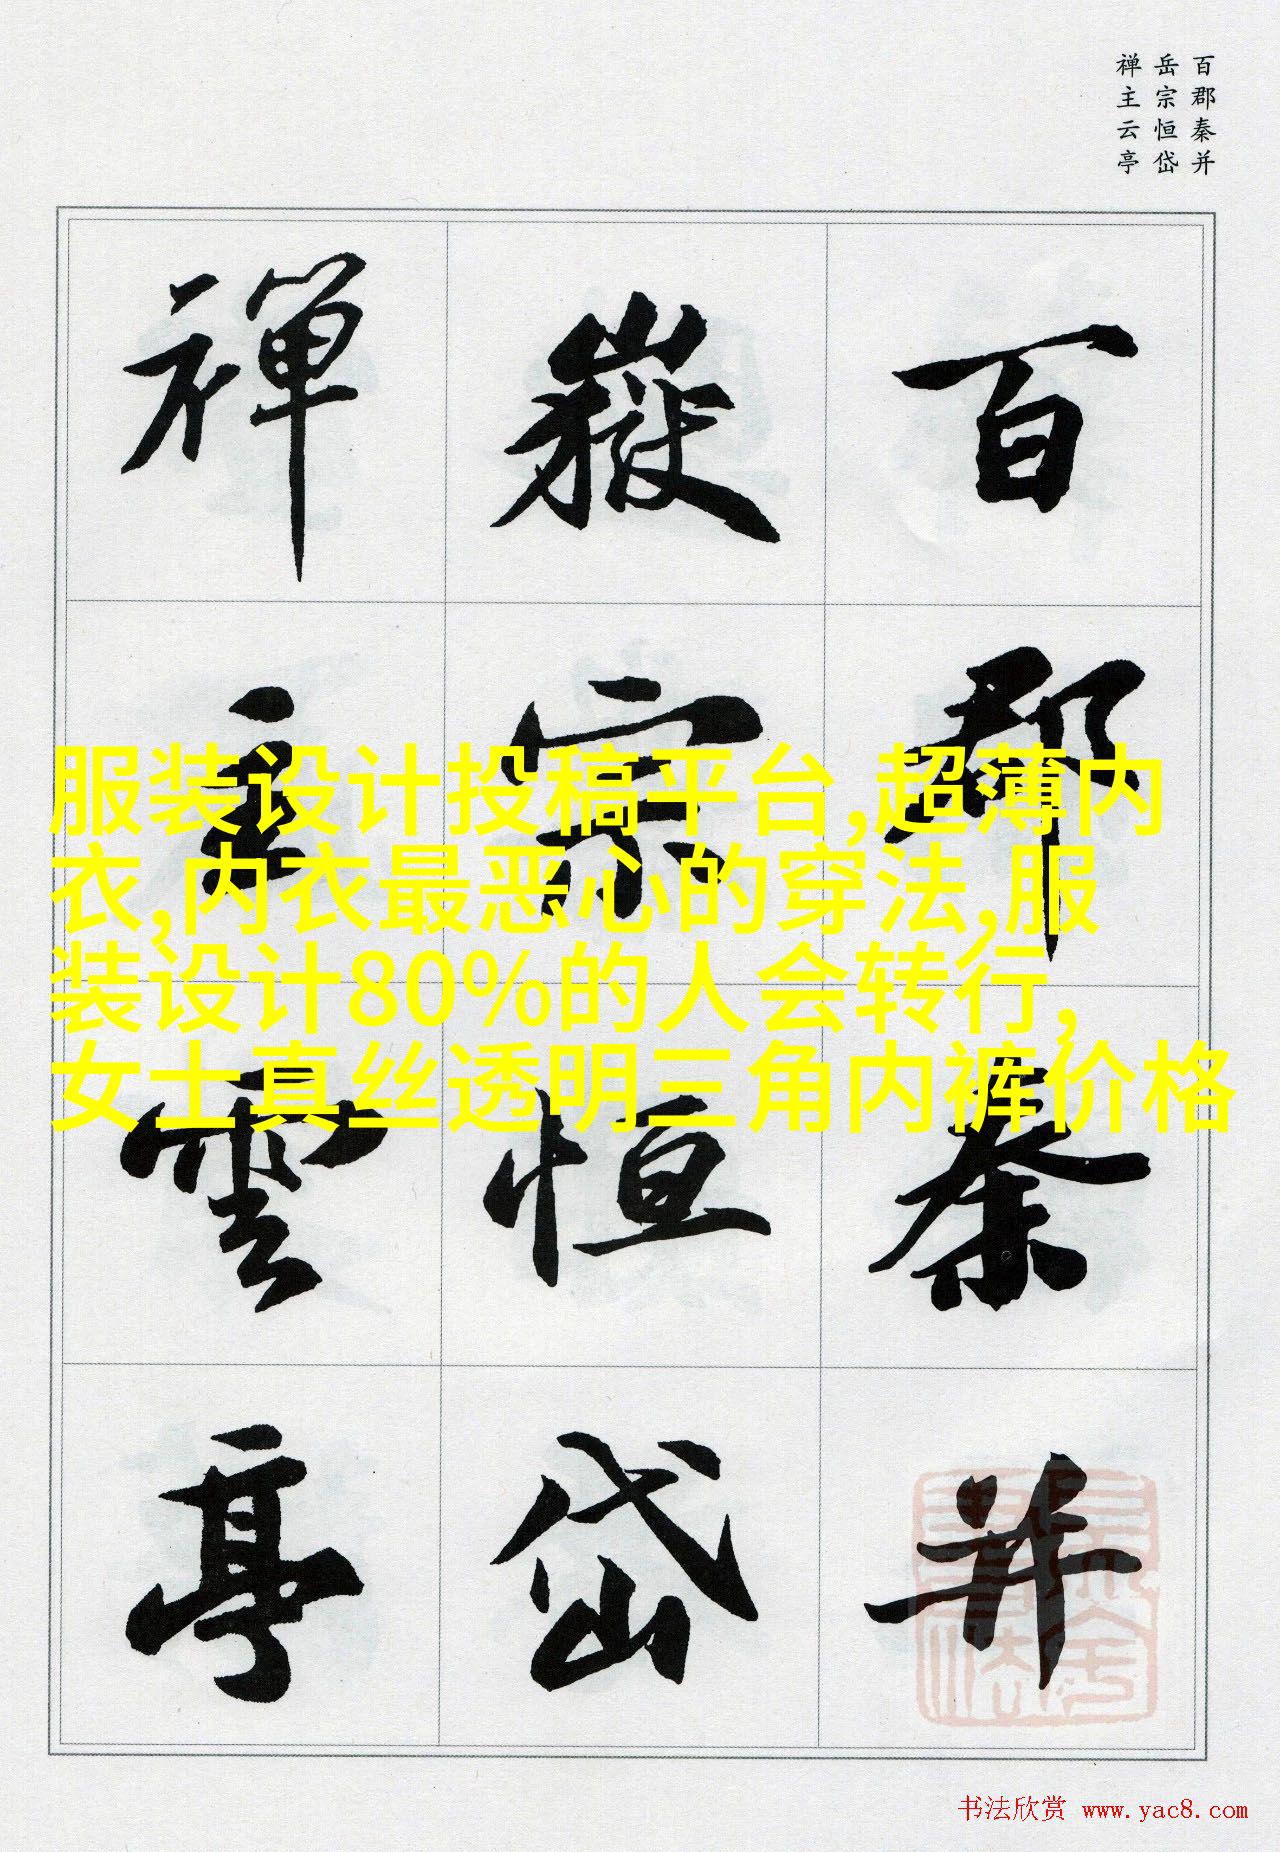 百郡秦并
岳宗恒岱
禅主云亭
百郡秦并
嶽宗恒岱
禅主雲亭
服装设计投稿平台,超薄内
衣,内衣最恶心的穿法,服
装设计80%的人会转行,
女士真丝透明三角内裤价格
书法欣赏 www.yac8.com